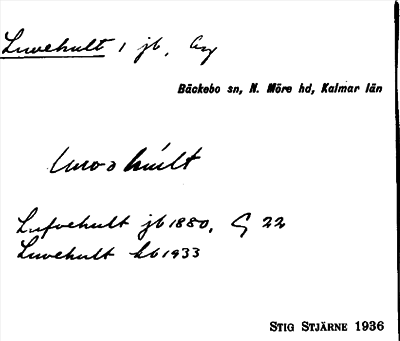 Luvehult 1 jb,
Bäckebo sn, N. Möre hd, Kalmar län
Lufvehult jb 1880, G 22
Luvehult kb 1933
STIG STJÄRNE 1936